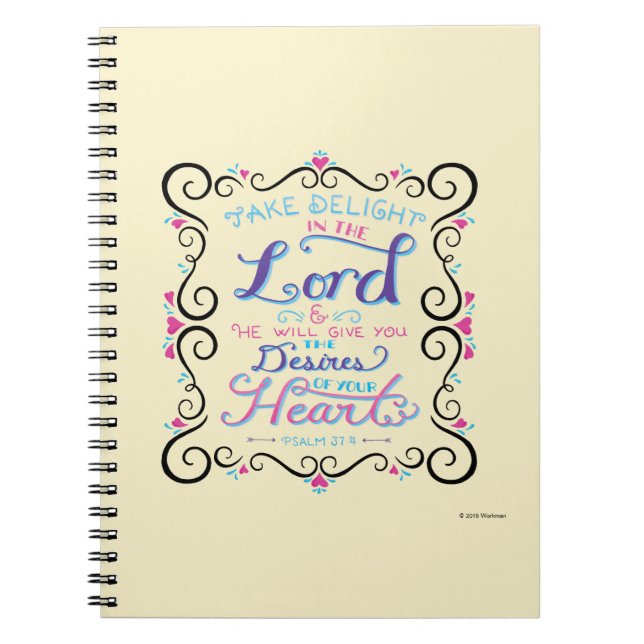 TAKE DELIGHT
IN THE
Lord
&
HE WILL GIVE YOU
THE
Desires
OF YOUR
Heart
PSALM 37:4
© 2015 Workman